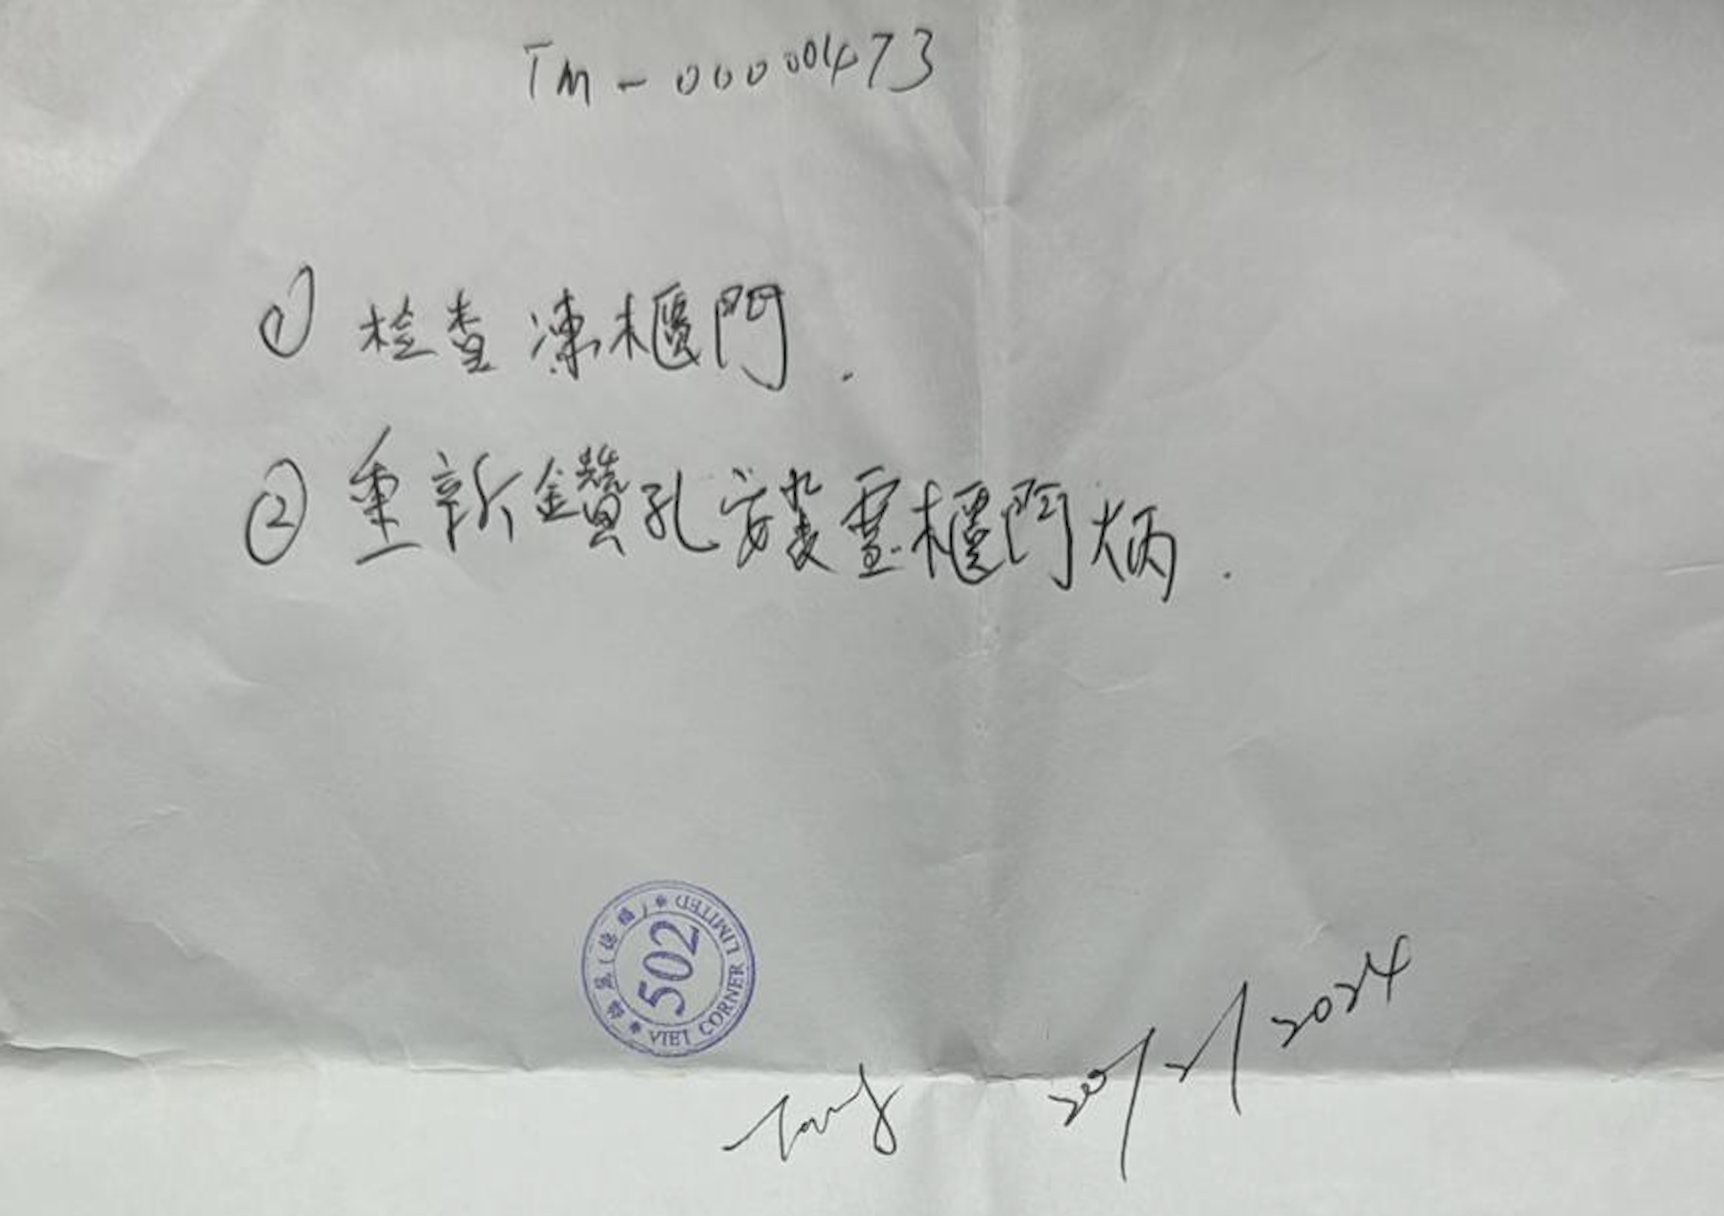 TM-00000473
① 检查凍櫃門.
② 重新鑽孔安裝雪櫃門炳.
502
VIET CORNER LIMITED
20/2/2024